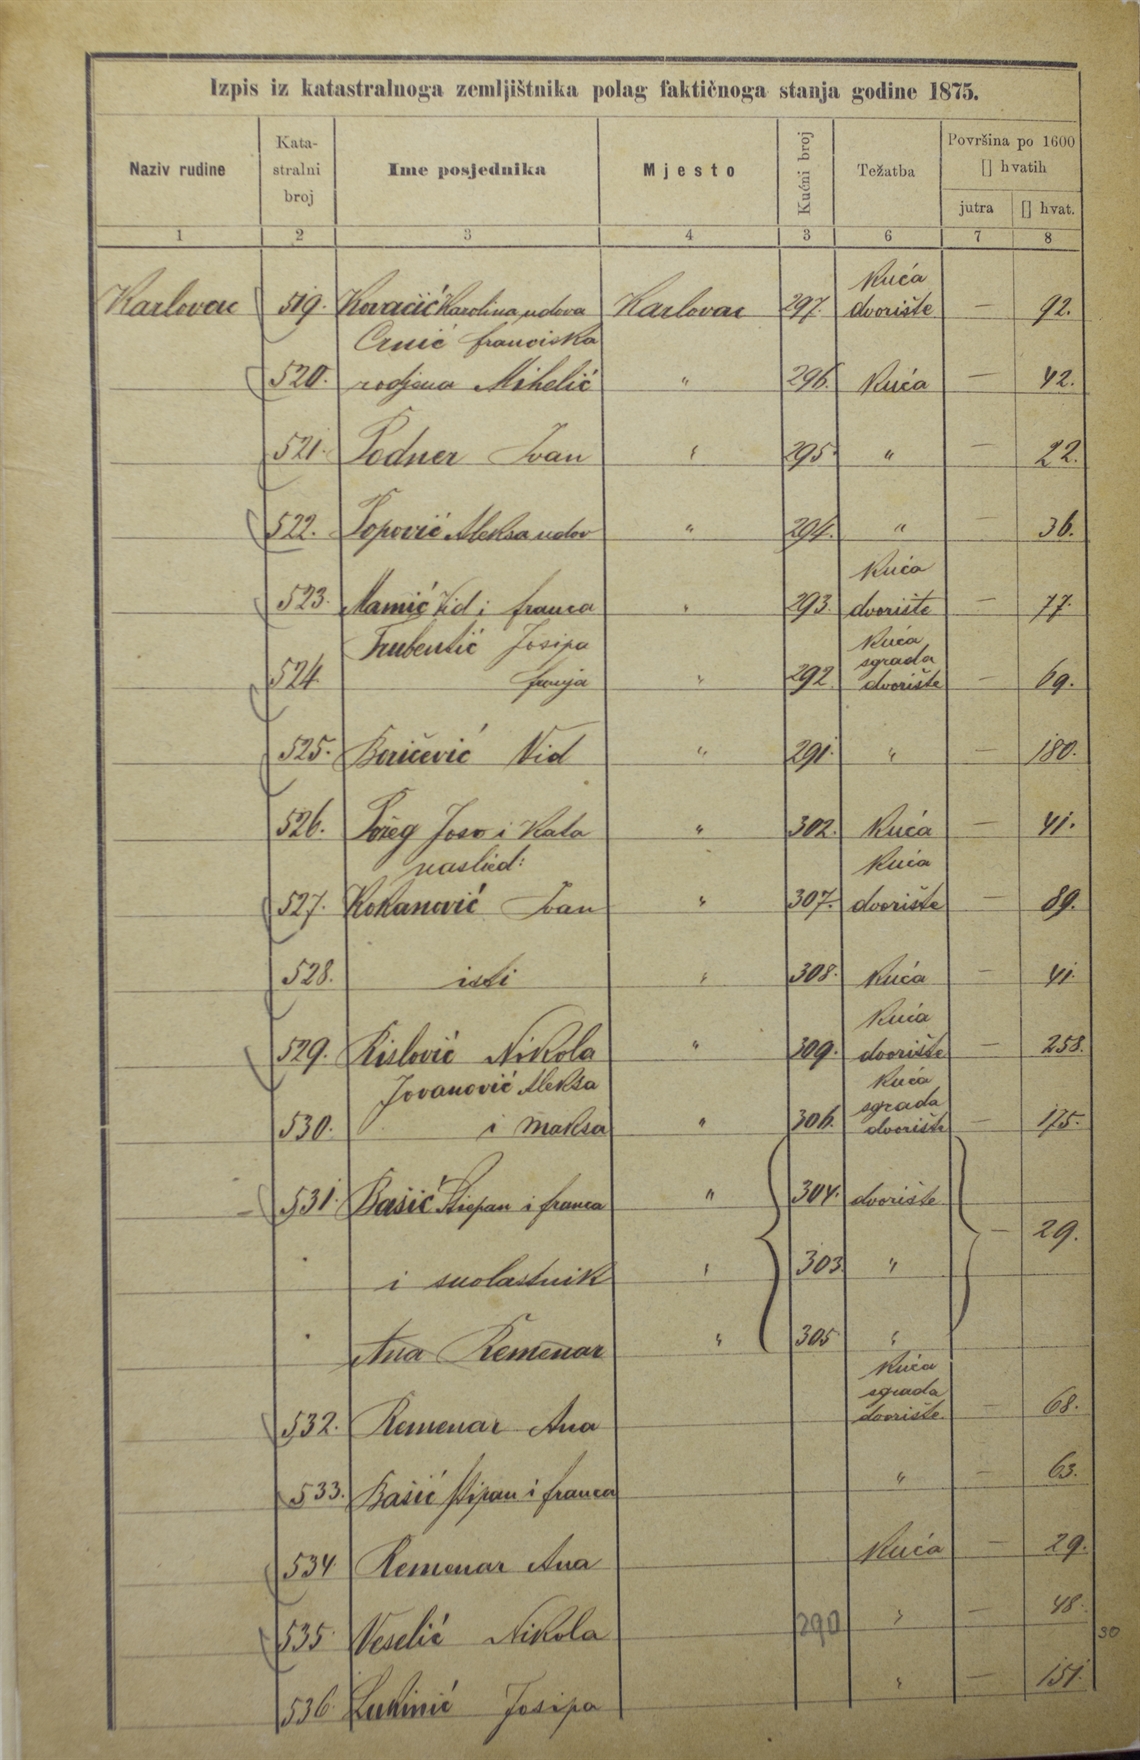 Izpis iz katastralnoga zemljištnika polag faktičnoga stanja godine 1875.
Naziv rudine Katastralni broj Ime posjednika Mjesto Kućni broj Težatba Površina po 1600 [] hvatih
jutra [] hvat.
1 2 3 4 3 6 7 8
Kuća
Karlovac 519. Kovačić Karolina udova Karlovac 297. dvorište — 92.
Crnić Franciska
520. rodjena Mihelić " 296. Kuća — 42.
521. Podner Ivan " 295. " — 22.
522. Popović Aleksa udov " 294. " — 36.
Kuća
523. Mamić Vid i Franca " 293. dvorište — 77.
Trubentić Josipa Kuća
sgrada
524 Franja " 292. dvorište — 69.
525. Boričević Vid " 291. " — 180.
526. Požeg Joso i Kata " 302. Kuća — 41.
naslied: Kuća
527. Kokanović Ivan " 307. dvorište — 89.
528. isti " 308. Kuća — 41.
Kuća
529. Rislović Nikola " 309. dvorište — 258.
Jovanović Aleksa Kuća
sgrada
530. i Maksa " 306. dvorište — 175.
531. Bašić Stiepan i Franca " 304. dvorište
— 29.
i suvlastnik " 303. "
Ana Remenar " 305 "
Kuća
sgrada
532. Remenar Ana dvorište — 68.
533. Bašić Stipan i Franca " — 63.
534 Remenar Ana Kuća — 29.
535 Veselić Nikola 290 " — 48.
30
536. Lukinić Josipa " — 151.